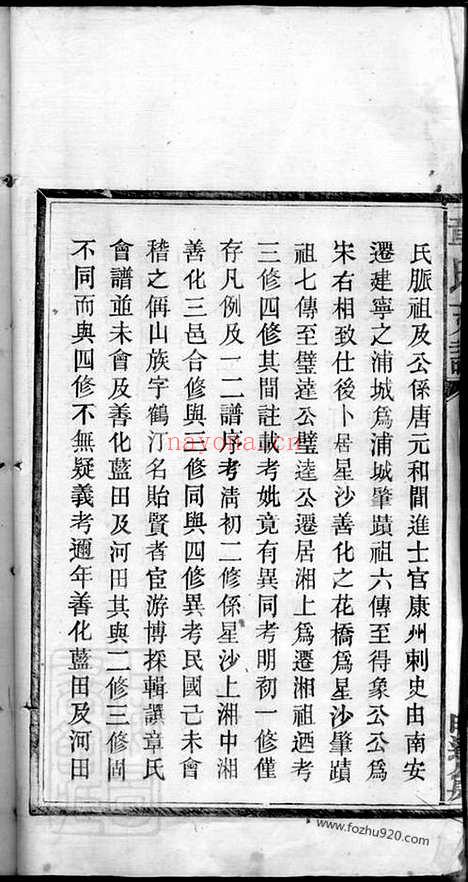 氏脈祖及公係唐元和間進士官康州刺史由南安
遷建寧之浦城爲浦城肇蹟祖六傳至得象公公爲
宋右相致仕後卜居星沙善化之花橋爲星沙肇蹟
祖七傳至璧達公璧達公遷居湘上爲遷湘祖迺考
三修四修其間註載考妣竟有異同考明初一修僅
存凡例及一二譜序考淸初二修係星沙上湘中湘
善化三邑合修與三修同與四修異考民國己未會
稽之偁山族字鶴汀名貽賢者宦游博採輯譔章氏
會譜並未會及善化藍田及河田其與二修三修固
不同而與四修不無疑義考邇年善化藍田及河田
nayona.cn
www.fozhu920.com